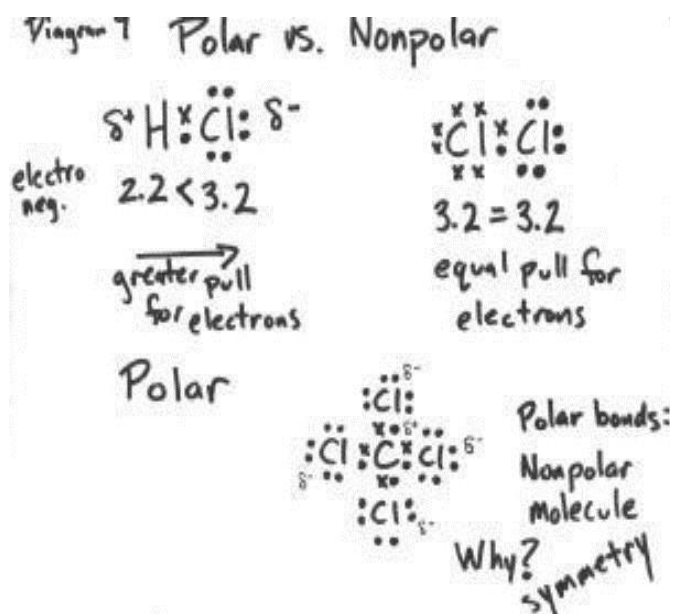 Diagram 7 Polar vs. Nonpolar
δ+ H:Cl: δ-
electro
neg.
2.2 < 3.2
greater pull
for electrons
Polar
:Cl:Cl:
3.2 = 3.2
equal pull for
electrons
:Cl: δ-
δ+
:Cl:C:Cl: δ-
δ-
:Cl: δ-
Polar bonds:
Nonpolar
molecule
Why?
symmetry